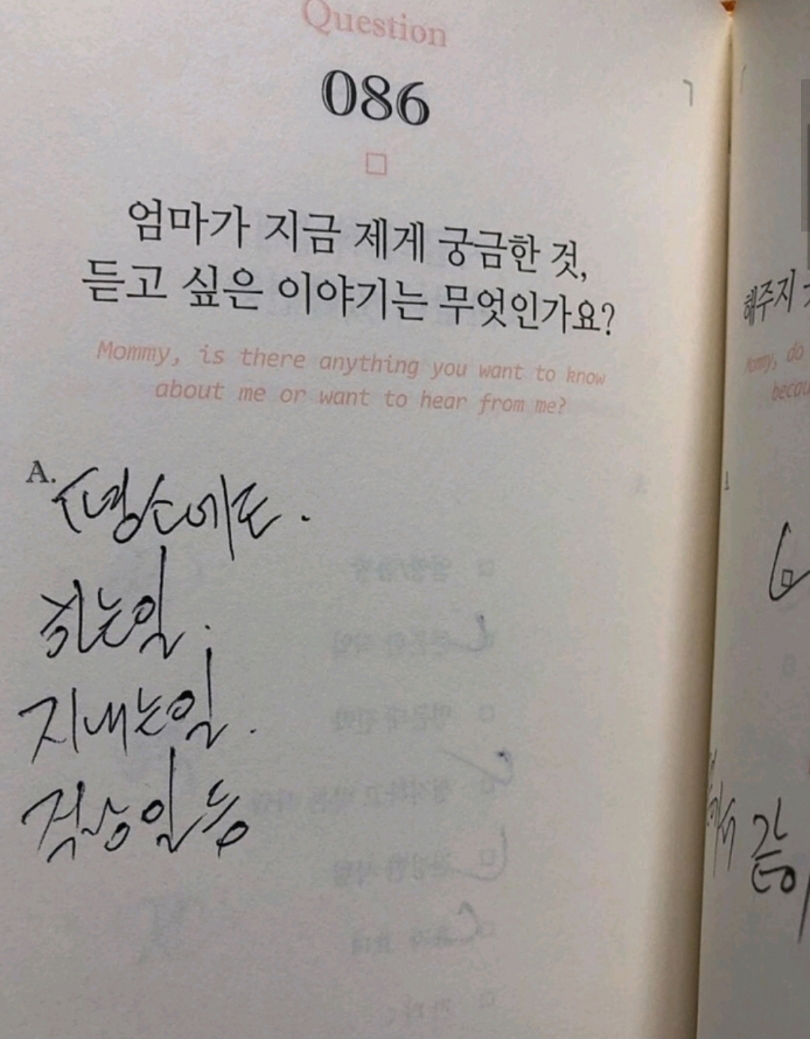 Question
086
엄마가 지금 제게 궁금한 것,
듣고 싶은 이야기는 무엇인가요?
Mommy, is there anything you want to know
about me or want to hear from me?
A. 평소에도.
하는일.
지내는일.
직장일 등
해주지
Mommy, do
becau